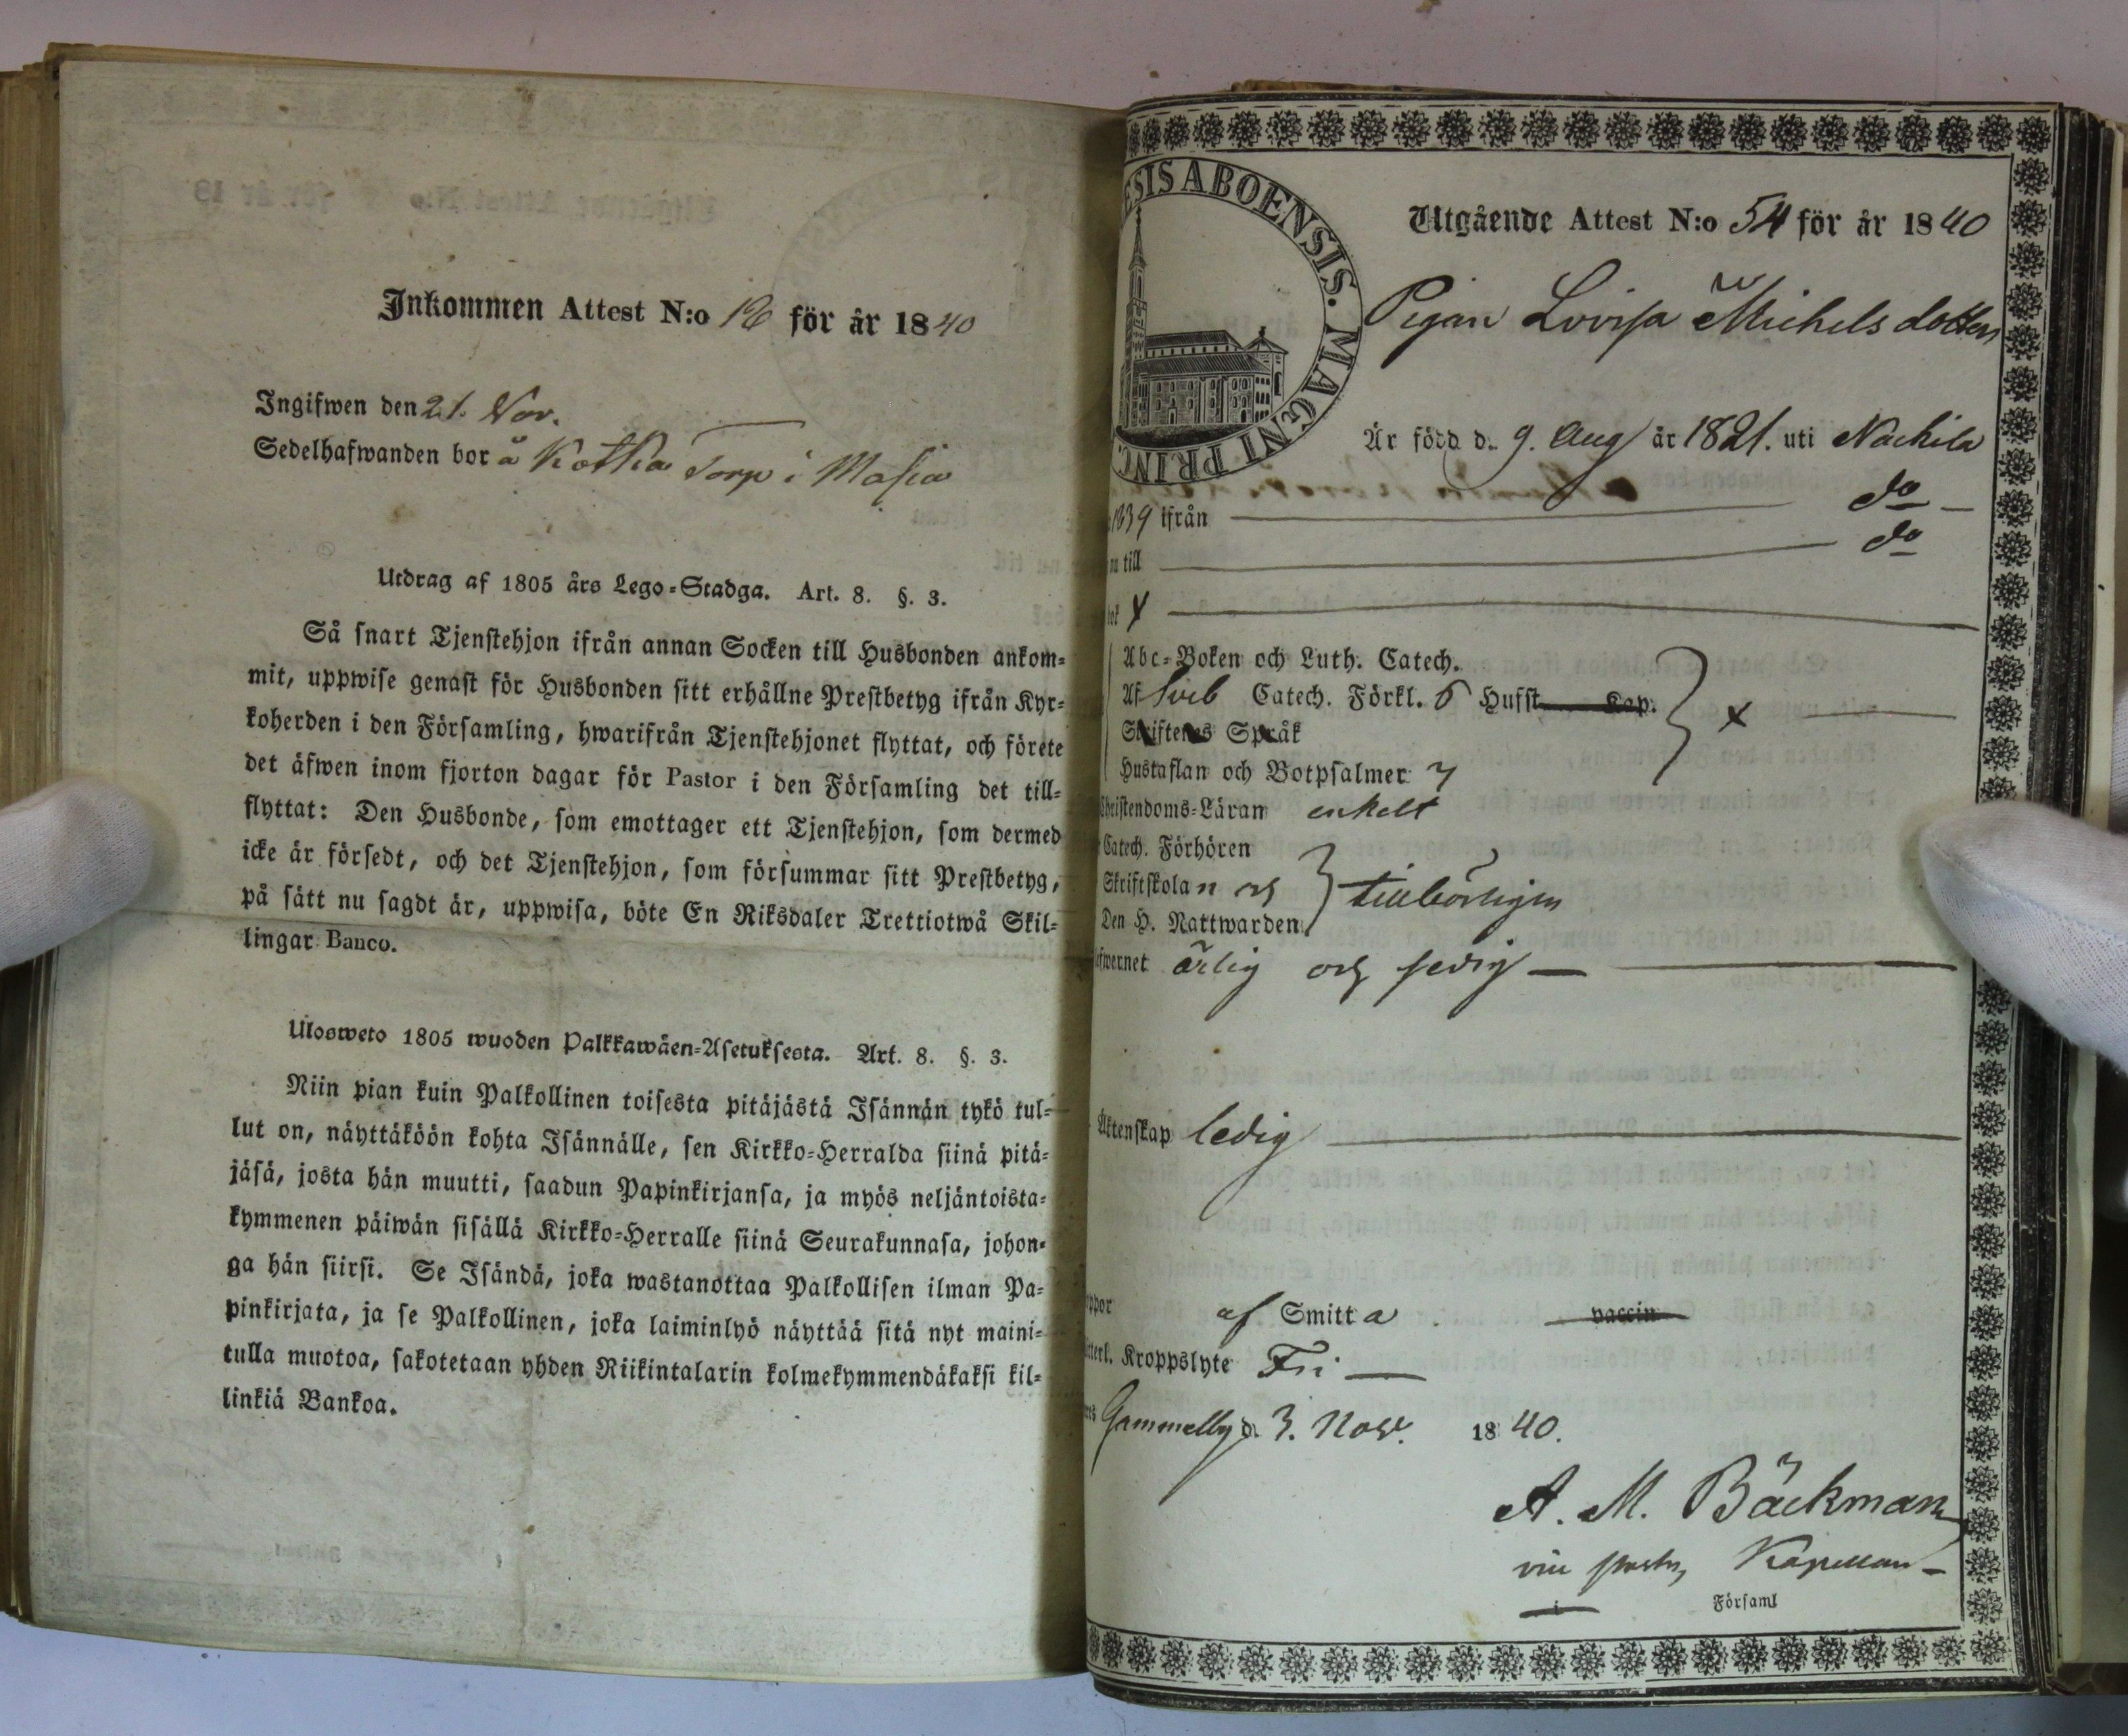 Inkommen Attest N:o 16 för år 1840
Ingifwen den 21. Nov.
Sedelhafwanden bor å Kotka Torp i Masia
Utdrag af 1805 års Lego-Stadga. Art. 8. §. 3.
Så snart Tjenstehjon ifrån annan Socken till Husbonden ankom-
mit, uppwise genast för Husbonden sitt erhållne Prestbetyg ifrån Kyr-
koherden i den Församling, hwarifrån Tjenstehjonet flyttat, och förete
det äfwen inom fjorton dagar för Pastor i den Församling det till-
flyttat: Den Husbonde, som emottager ett Tjenstehjon, som dermed
icke är försedt, och det Tjenstehjon, som försummar sitt Prestbetyg,
på sätt nu sagdt är, uppwisa, böte En Riksdaler Trettiotwå Skil-
lingar Banco.
Ulosweto 1805 wuoden Palkkawäen-Asetuksesta. Art. 8. §. 3.
Niin pian kuin Palkollinen toisesta pitäjästä Isännän tykö tul-
lut on, näyttäköön kohta Isännälle, sen Kirkko-Herralda siinä pitä-
jäsä, josta hän muutti, saadun Papinkirjansa, ja myös neljäntoista-
kymmenen päiwän sisällä Kirkko-Herralle siinä Seurakunnasa, johon-
ga hän siirsi. Se Isändä, joka wastanottaa Palkollisen ilman Pa-
pinkirjata, ja se Palkollinen, joka laiminlyö näyttää sitä nyt maini-
tulla muotoa, sakotetaan yhden Riikintalarin kolmekymmendäkaksi kil-
linkiä Bankoa.
ESIS ABOENSIS. MAGNI PRINC
Utgående Attest N:o 54 för år 1840
Pigan Lovisa Michels dotter
Är född d. 9. Aug år 1821. uti Nackila
1839 ifrån do
nu till do
bok X
Abc-Boken och Luth. Catech.
Af Sveb Catech. Förkl. 5 Hufst Kap. X
Skriftenes Språk
Hustaflan och Botpsalmer 7
Christendoms-Läran enkelt
Catech. Förhören
Skriftskolan och tillbörligen
Den H. Nattwarden
lefwernet ärlig och sedig
Äktenskap ledig
ppor af Smitta vaccin
ytterl. Kroppslyte Fri
Gammelby d. 3. Nov. 1840.
A. M. Bäckman
vice pastor, Kapellan
i Församl